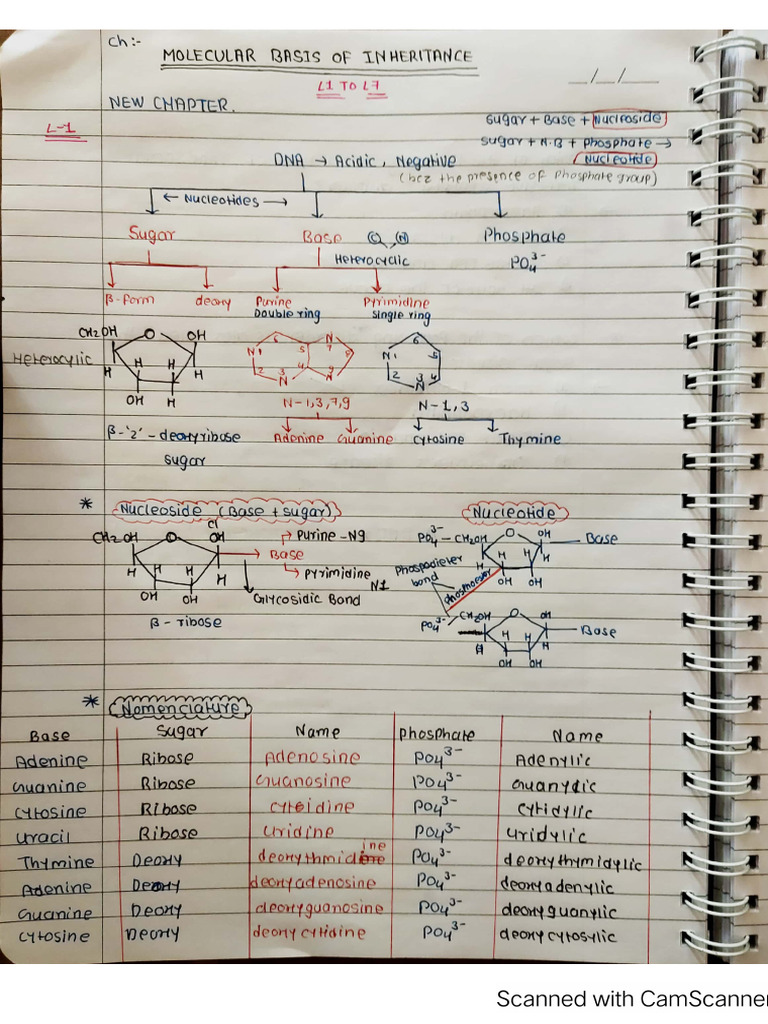 Ch:-
MOLECULAR BASIS OF INHERITANCE
L1 TO L7
__/__/____
NEW CHAPTER.
L-1
Sugar + Base + Nucleoside
Sugar + N.B + Phosphate →
Nucleotide
DNA → Acidic, Negative
(bcz the presence of Phosphate group)
← Nucleotides →
Sugar Base C N Phosphate
Heterocyclic PO4 3-
β-form deoxy Purine Pyrimidine
Double ring Single ring
CH2OH O OH
Heterocylic
H H H H
OH H
N1 2 3 N 4 5 6 N 7 8 9 N
N1 2 3 N 4 5 6
N-1,3,7,9 N-1,3
β-'2'-deoxyribose Adenine Guanine Cytosine Thymine
sugar
* Nucleoside (Base + sugar) Nucleotide
CH2OH O OH
Purine - N9
Base
Pyrimidine N1
H H H H
OH OH
Glycosidic Bond
β-ribose
PO4 3- - CH2OH O OH Base
H H H
Phospodieter
bond
OH OH
PO4 3- CH2OH O OH Base
H H H H
OH OH
* Nomenclature
Base Sugar Name Phosphate Name
Adenine Ribose Adenosine PO4 3- Adenylic
Guanine Ribose Guanosine PO4 3- Guanylic
Cytosine Ribose Cytidine PO4 3- Cytidylic
Uracil Ribose Uridine PO4 3- Uridylic
Thymine Deoxy deoxythmidine PO4 3- deoxythymidylic
Adenine Deoxy deoxyadenosine PO4 3- deoxyadenylic
Guanine Deoxy deoxyguanosine PO4 3- deoxyguanylic
Cytosine Deoxy deoxycytidine PO4 3- deoxycytosylic
Scanned with CamScanner